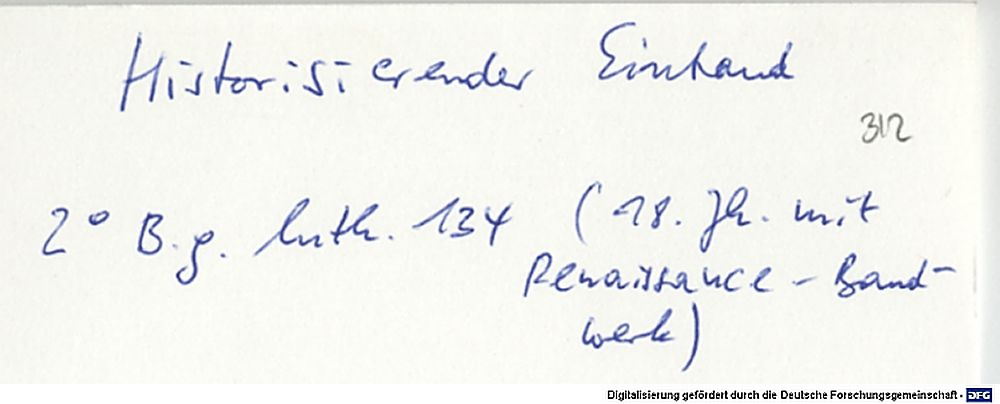 Historisierender Einband
312
2° B.g. luth. 134 (18. Jh. mit
Renaissance - Band-
werk)
Digitalisierung gefördert durch die Deutsche Forschungsgemeinschaft - DFG